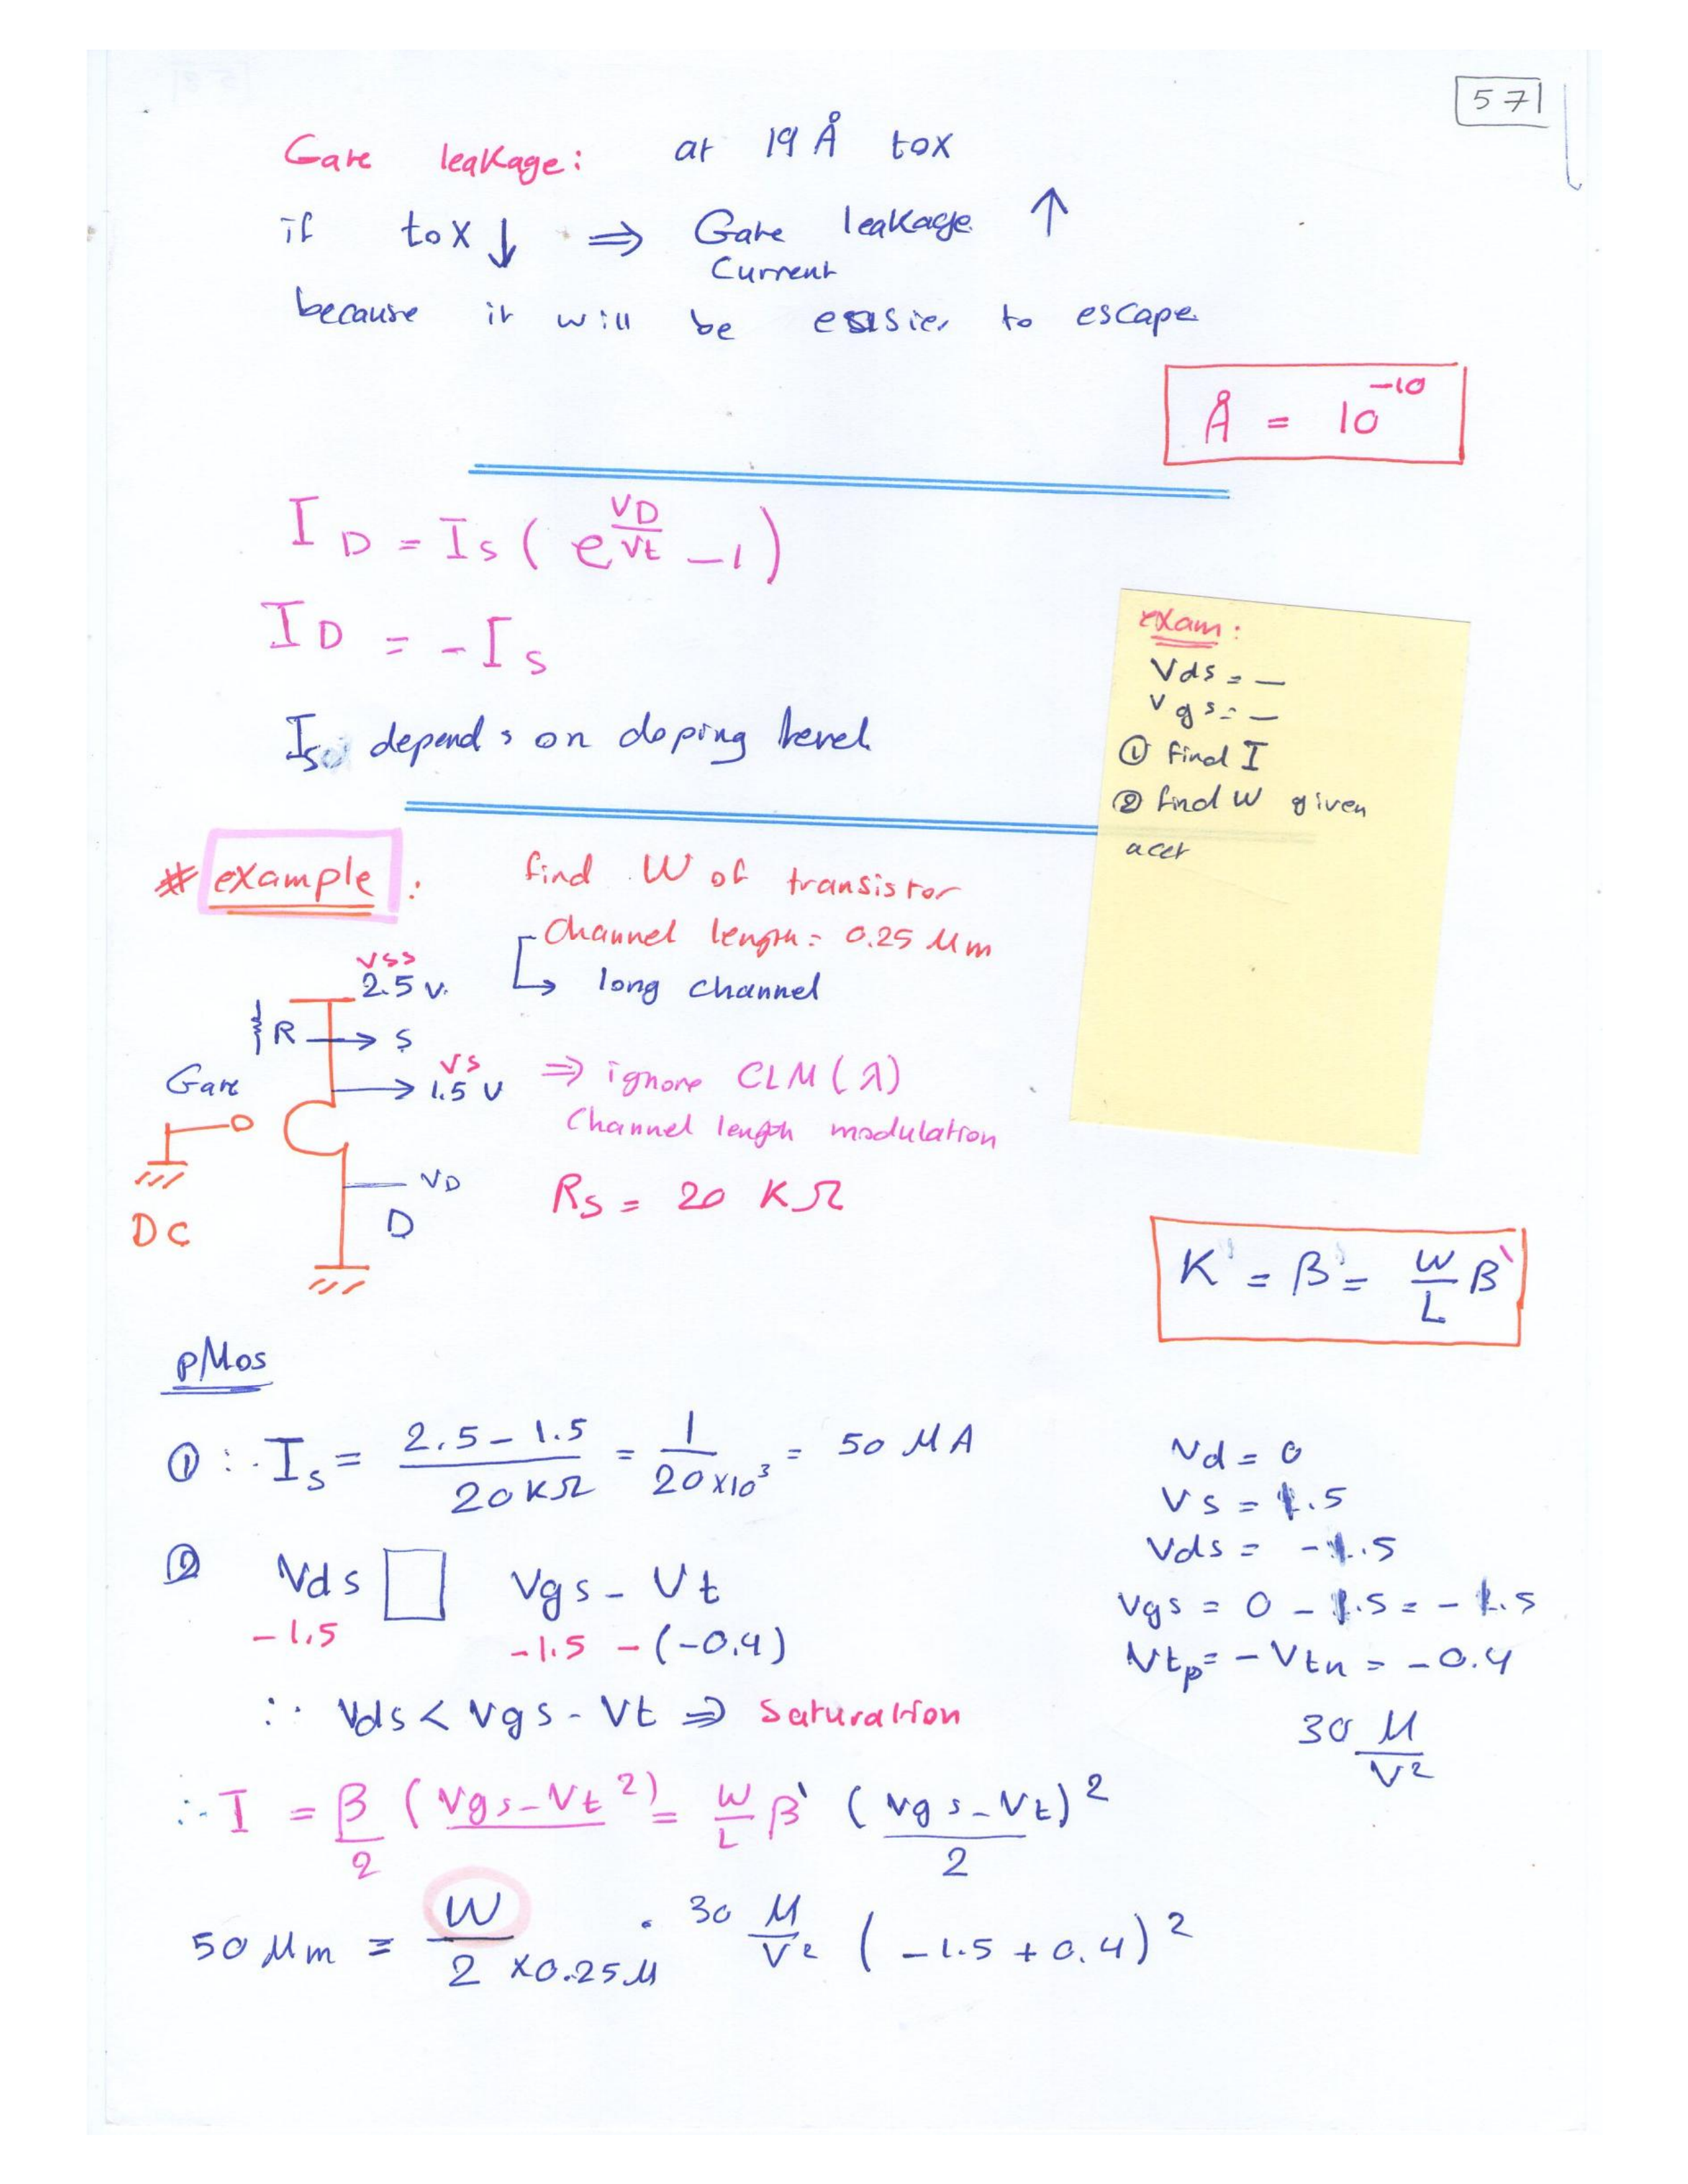 57
Gate leakage: at 19 Å tox
if tox ↓ ⇒ Gate leakage ↑
Current
because it will be easier to escape
Å = 10^-10
I_D = I_S ( e^(VD/Vt) - 1 )
I_D = - I_S
I_S depends on doping level
exam:
Vds = —
Vgs = —
① find I
② find W given
# example : find W of transistor
Channel length = 0.25 μm
↳ long channel
VSS
2.5 V.
R → S
VS
1.5 V
Gate
⇒ ignore CLM (λ)
Channel length modulation
VD
D
DC
R_S = 20 KΩ
K' = β' = W/L β'
pMos
① ∴ I_S = (2.5 - 1.5)/(20 KΩ) = 1/(20×10^3) = 50 μA
Vd = 0
Vs = 1.5
Vds = -1.5
Vgs = 0 - 1.5 = -1.5
Vtp = -Vtn = -0.4
30 μ/V²
② Vds □ Vgs - Vt
-1.5 -1.5 - (-0.4)
∴ Vds < Vgs - Vt ⇒ Saturation
∴ I = β/2 (Vgs - Vt²) = W/L β' (Vgs - Vt)²/2
50 μm = W/(2 × 0.25μ) · 30 μ/V² (-1.5 + 0.4)²